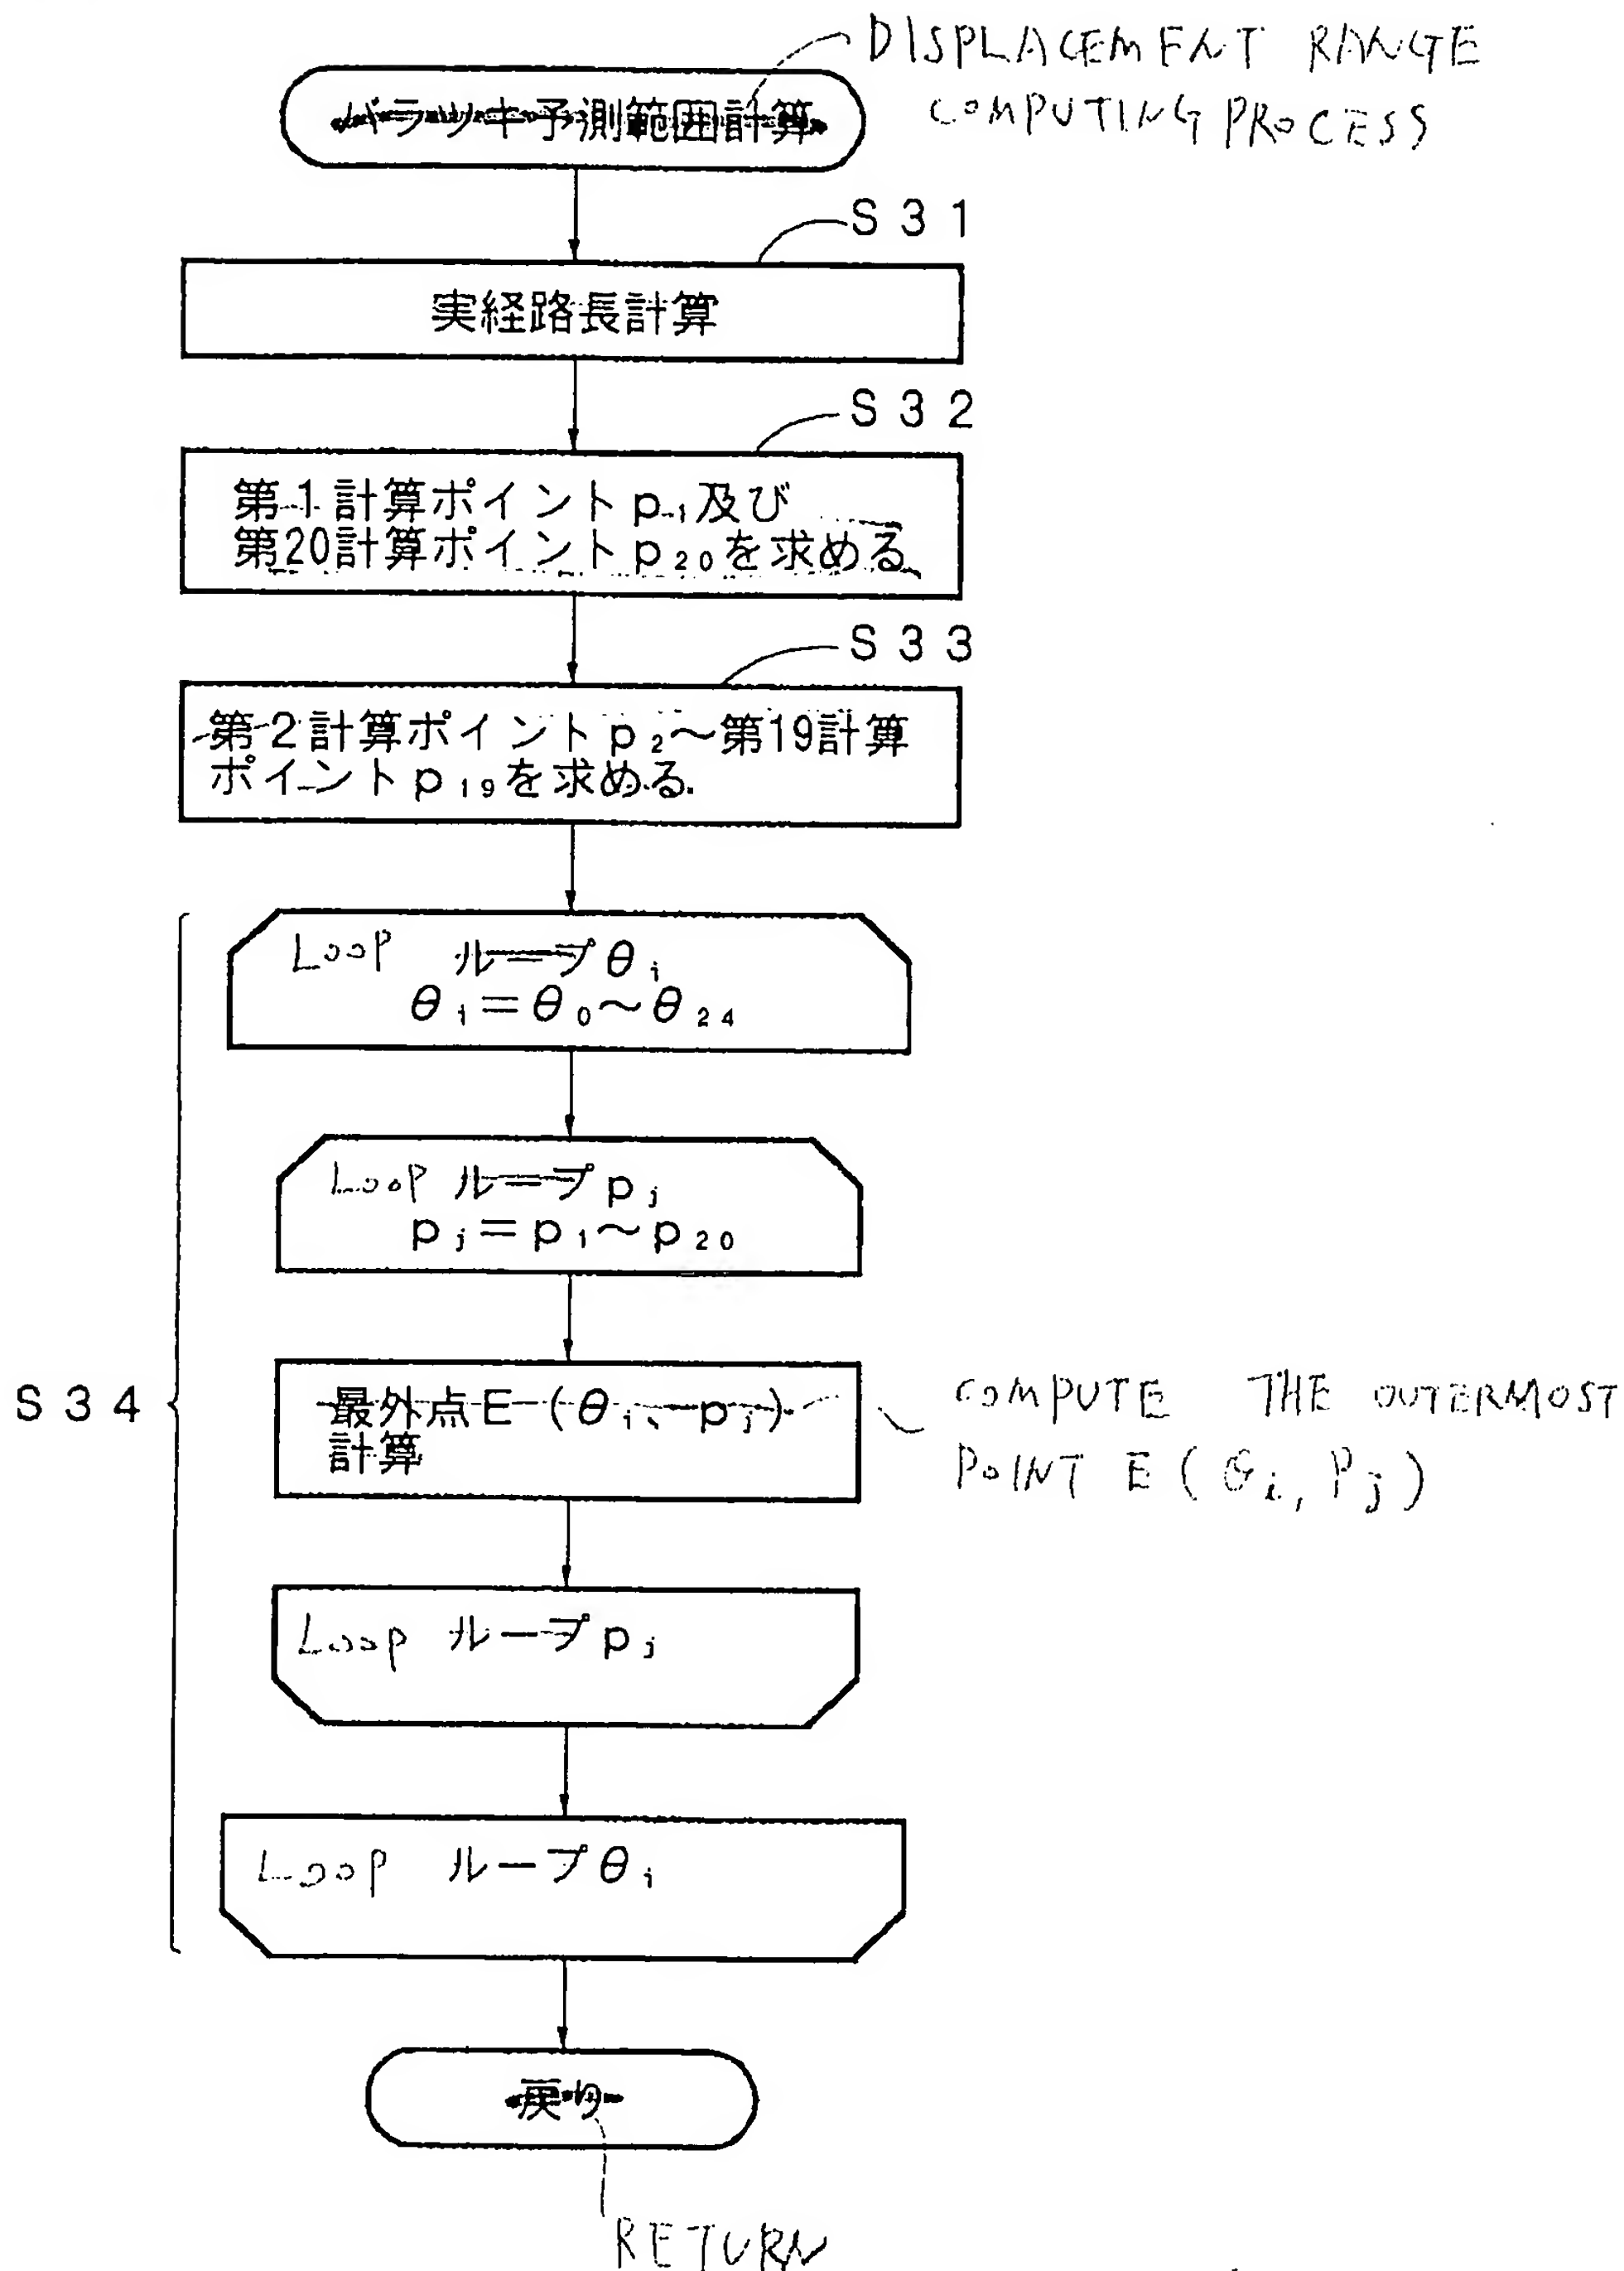 DISPLACEMENT RANGE
COMPUTING PROCESS
バラツキ予測範囲計算
S31
実経路長計算
S32
第1計算ポイントp₁及び
第20計算ポイントp₂₀を求める
S33
第2計算ポイントp₂～第19計算
ポイントp₁₉を求める
Loop ループθᵢ
θᵢ＝θ₀～θ₂₄
Loop ループpⱼ
pⱼ＝p₁～p₂₀
S34
最外点E（θᵢ、pⱼ）
計算
COMPUTE THE OUTERMOST
POINT E (θi, Pj)
Loop ループpⱼ
Loop ループθᵢ
戻り
RETURN